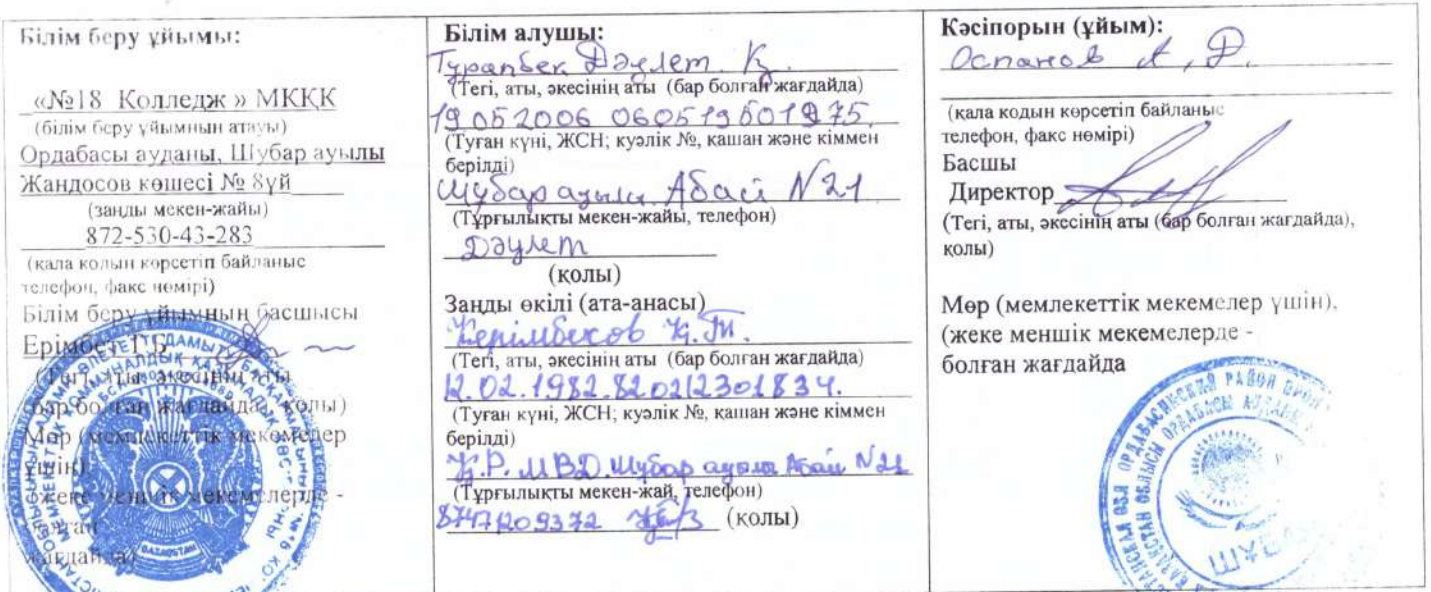 Білім беру ұйымы:
«№18 Колледж » МКҚК
(білім беру ұйымнын атауы)
Ордабасы ауданы, Шубар ауылы
Жандосов көшесі № 8үй
(занды мекен-жайы)
872-530-43-283
(кала колын көрсетіп байланыс
телефон, факс нөмірі)
Білім беру ұйымның басшысы
Ерімбет Г.Б
(Тегі, аты, әкесінің аты
бар болған жағдайда), қолы)
Мөр (мемлекеттік мекемелер
үшін),
(жеке меншік мекемелерде -
болған
жағдайда)
Білім алушы:
Турапбек Дәулет Қ.
(Тегі, аты, әкесінің аты (бар болған жағдайда)
19.05.2006 060519501975.
(Туған күні, ЖСН; куәлік №, қашан және кіммен
берілді)
Шубар ауылы Абай N21
(Тұрғылықты мекен-жайы, телефон)
Дәулет
(қолы)
Заңды өкілі (ата-анасы)
Керімбеков Қ.Т.
(Тегі, аты, әкесінің аты (бар болған жағдайда)
12.02.1982.820212301834.
(Туған күні, ЖСН; куәлік №, қашан және кіммен
берілді)
Қ.Р. МВД. Шубар ауылы Абай N21
(Тұрғылықты мекен-жай, телефон)
87471209372 (қолы)
Кәсіпорын (ұйым):
Оспанов А, Д.
(қала кодын көрсетіп байланыс
телефон, факс нөмірі)
Басшы
Директор
(Тегі, аты, әкесінің аты (бар болған жағдайда),
қолы)
Мөр (мемлекеттік мекемелер үшін),
(жеке меншік мекемелерде -
болған жағдайда